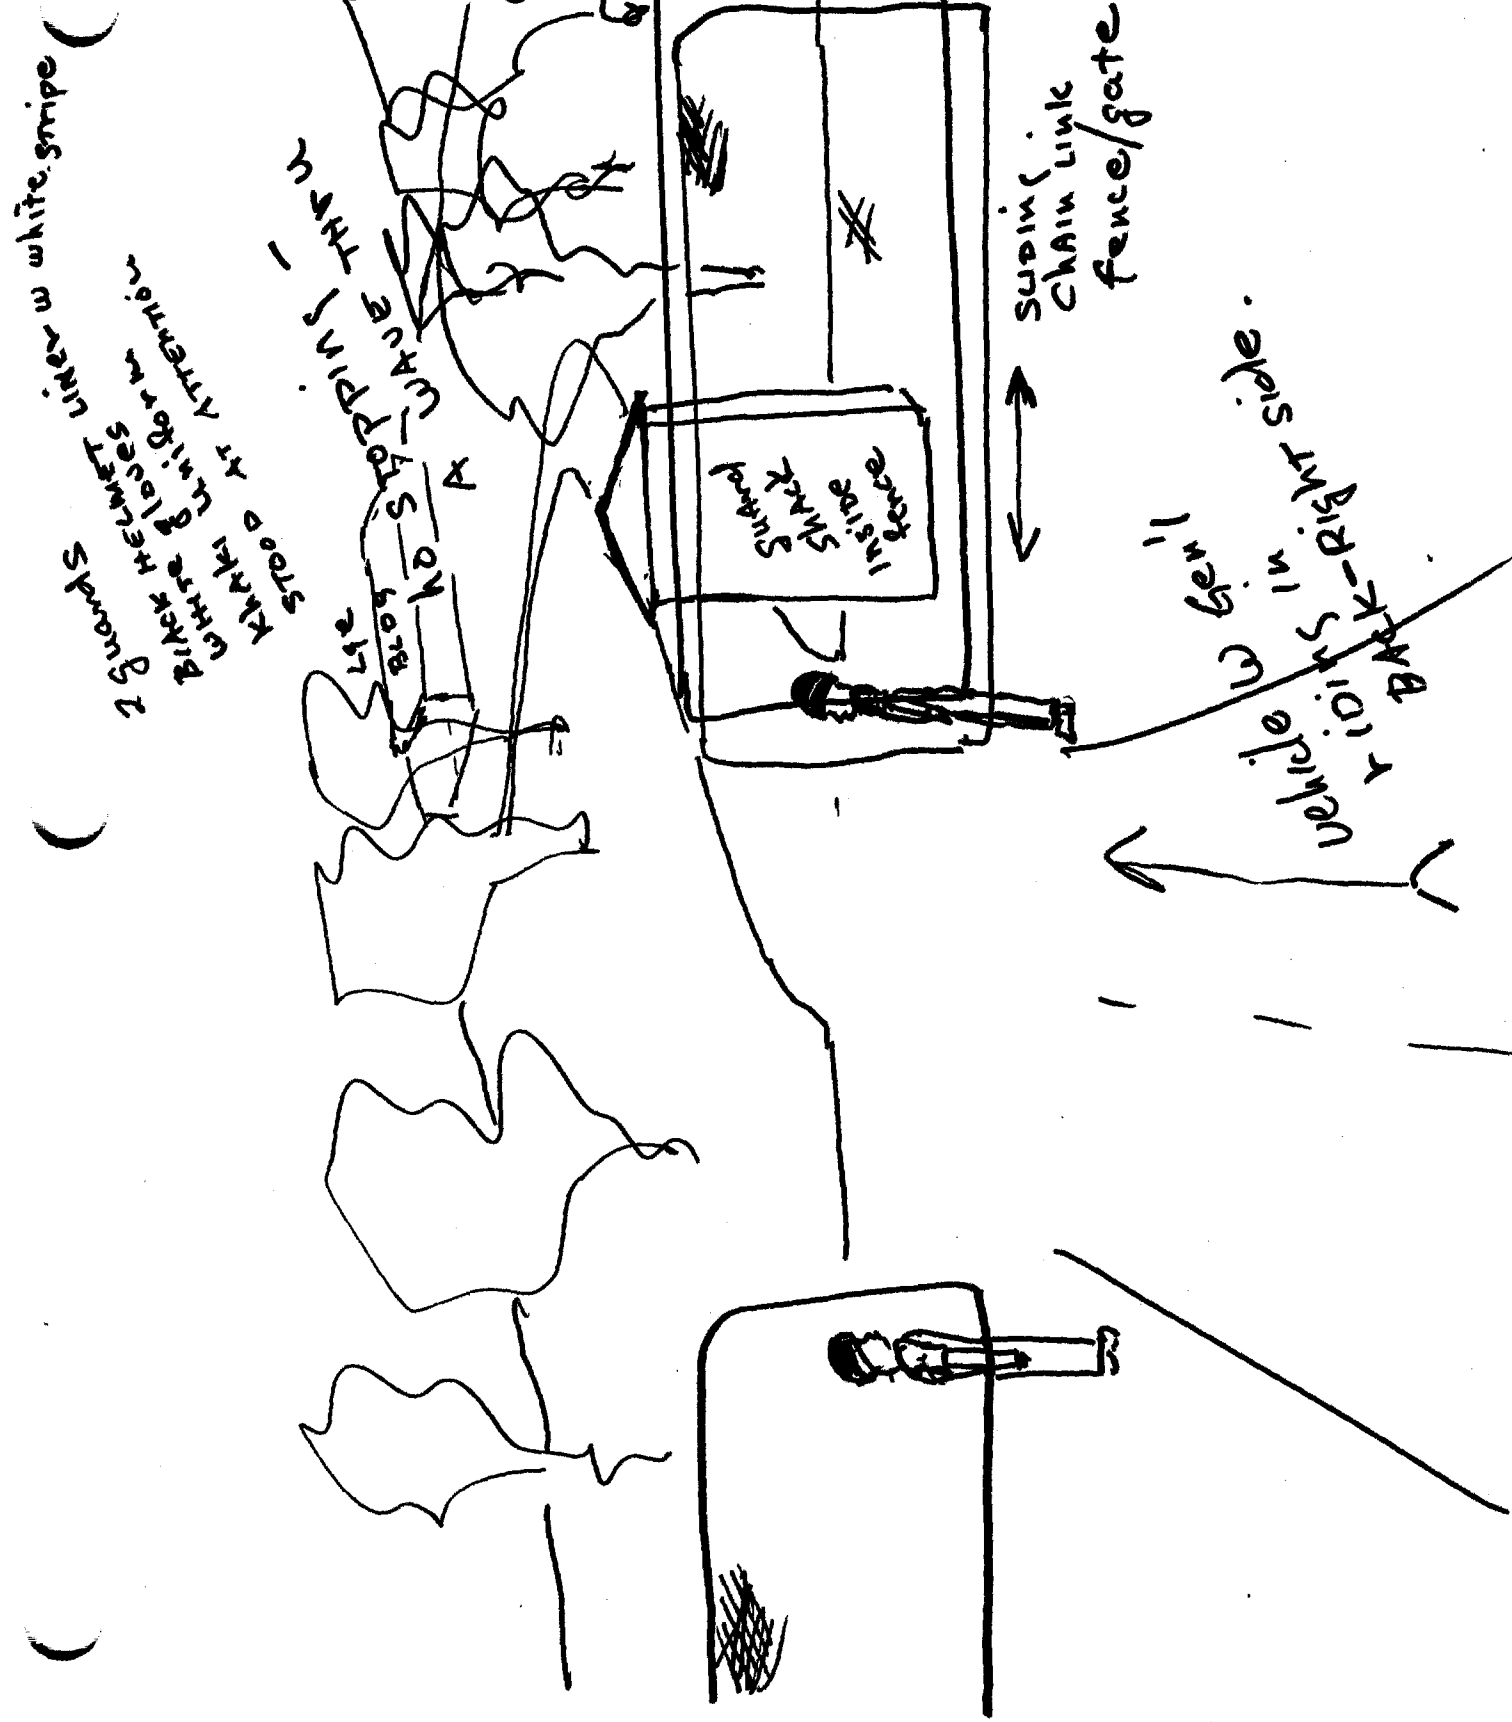 2 guards
BLACK HELMET LINER w white stripe
WHITE gloves
KHAKI uniform
STOOD AT ATTENTION
NO — STOPPING —
A — WAVE THRU
Lge
BLDG
Guard
SHACK
INSIDE
fence
SLIDING
CHAIN LINK
fence/gate
vehicle w Gen'l
riding in
BACK-RIGHT side.